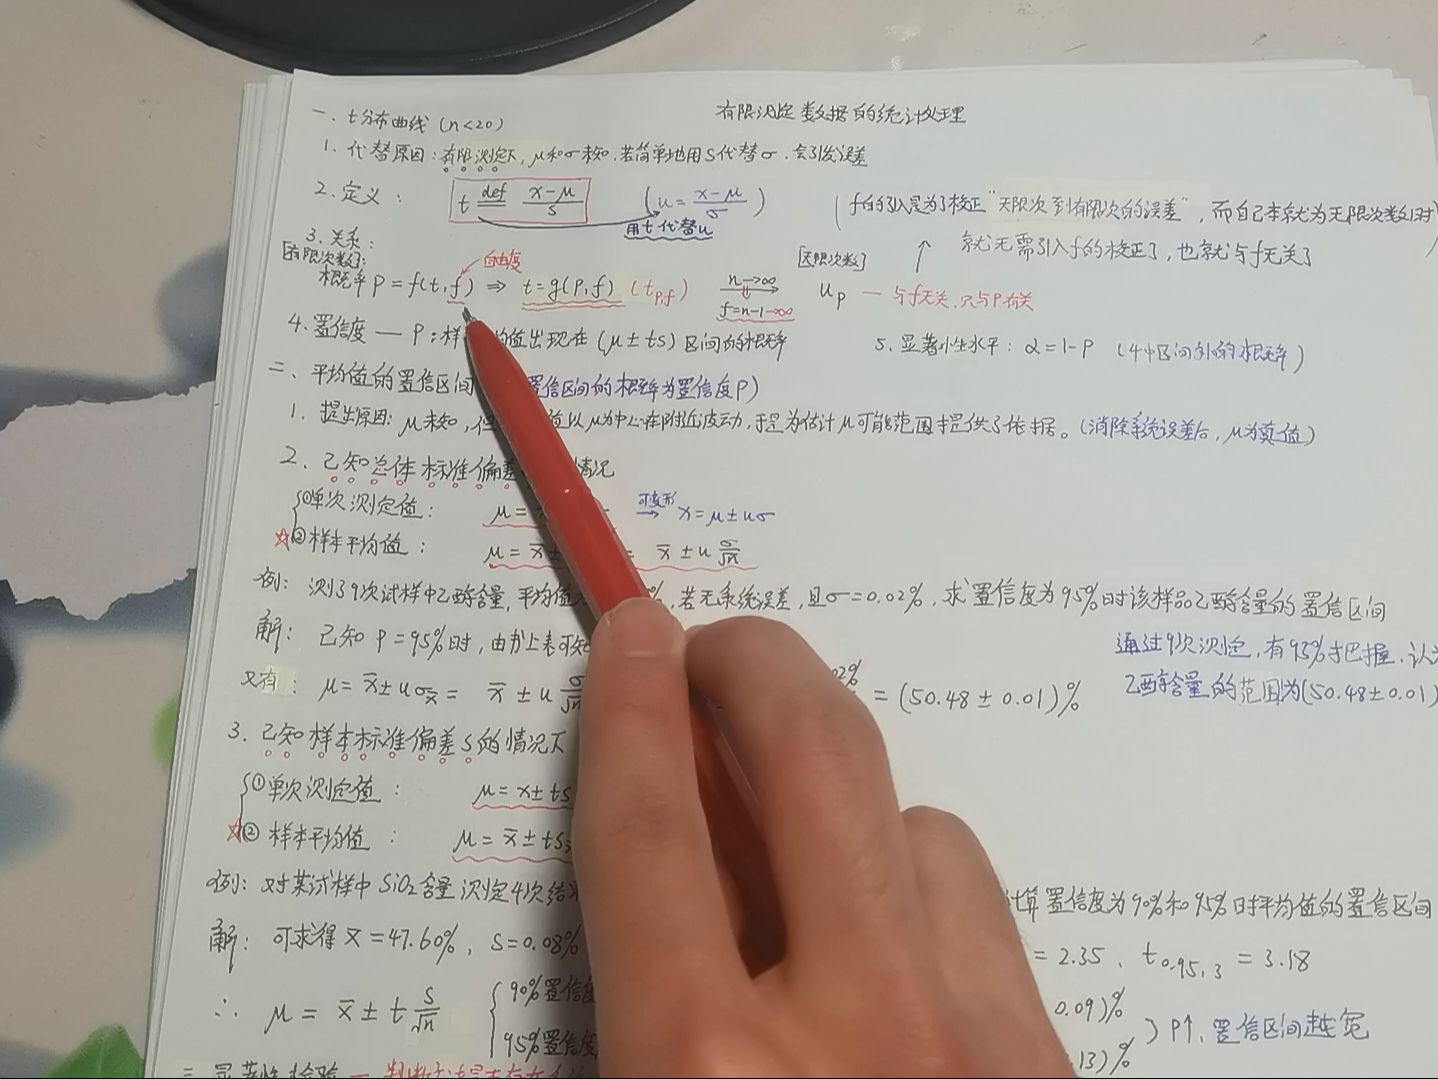 有限测定数据的统计处理
一、t分布曲线(n<20)
1. 代替原因:有限测定下,μ和σ未知,若简单地用S代替σ,会引发误差
2. 定义: t def x-μ/s (u = x-μ/σ)
用t代替u
(f的引入是为了校正"无限次到有限次的误差",而自己本就为无限次数时
就无需引入f的校正了,也就与f无关
3. 关系:
[有限次数]: 自由度 [无限次数]
概率P=f(t,f) ⇒ t=g(P,f) (tP,f) n→∞ f=n-1→∞ uP — 与f无关,只与P有关
4. 置信度 — P:样 均值出现在(μ±ts)区间的概率 5. 显著水平:α=1-P (4中区间外的概率)
二、平均值的置信区间 置信区间的概率为置信度P)
1. 提出原因:μ未知,但 值以μ为中心在附近波动,于是为估计μ可能范围提供了依据。(消除系统误差后,μ为真值)
2. 已知总体标准偏差 情况
①单次测定值: μ= 可变形→ x=μ±uσ
☆②样本平均值: μ=x̄± = x̄±u σ/√n
例:测了9次试样中乙醇含量,平均值 %,若无系统误差,且σ=0.02%,求置信度为95%时该样品乙醇含量的置信区间
解:已知P=95%时,由书上表可知
通过9次测定,有95%把握,认
乙醇含量的范围为(50.48±0.01)
又有: μ=x̄±uσx̄= x̄±u σ/√n 02% =(50.48±0.01)%
3. 已知样本标准偏差s的情况下
①单次测定值: μ=x±ts
☆②样本平均值: μ=x̄±ts
例:对某试样中SiO₂含量测定4次结果 计算置信度为90%和95%时平均值的置信区间
解:可求得x̄=47.60%,s=0.08% =2.35、t0.95,3=3.18
∴ μ=x̄±t s/√n { 90%置信度 0.09)%
95%置信度 13)% } P↑,置信区间越宽
三、显著性检验 —